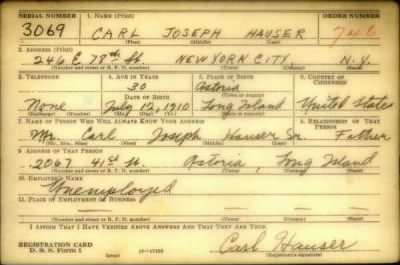 SERIAL NUMBER 1. NAME (Print) ORDER NUMBER
3069 CARL JOSEPH HAUSER 746
(First) (Middle) (Last)
2. ADDRESS (Print)
246 E 78th St. NEW YORK CITY N.Y.
(Number and street or R. F. D. number) (Town) (County) (State)
3. TELEPHONE 4. AGE IN YEARS 5. PLACE OF BIRTH 6. COUNTRY OF CITIZENSHIP
30 Astoria
DATE OF BIRTH (Town or county)
None July 12, 1910 Long Island United States
(Exchange) (Number) (Mo.) (Day) (Yr.) (State or country)
7. NAME OF PERSON WHO WILL ALWAYS KNOW YOUR ADDRESS 8. RELATIONSHIP OF THAT PERSON
Mr. Carl Joseph Hauser Sr. Father
(Mr., Mrs., Miss) (First) (Middle) (Last)
9. ADDRESS OF THAT PERSON
2067 41st St. Astoria, Long Island
(Number and street or R. F. D. number) (Town) (County) (State)
10. EMPLOYER'S NAME
Unemployed
11. PLACE OF EMPLOYMENT OR BUSINESS
(Number and street or R. F. D. number) (Town) (County) (State)
I AFFIRM THAT I HAVE VERIFIED ABOVE ANSWERS AND THAT THEY ARE TRUE.
REGISTRATION CARD
D. S. S. Form 1 Carl Hauser
(Registrant's signature)